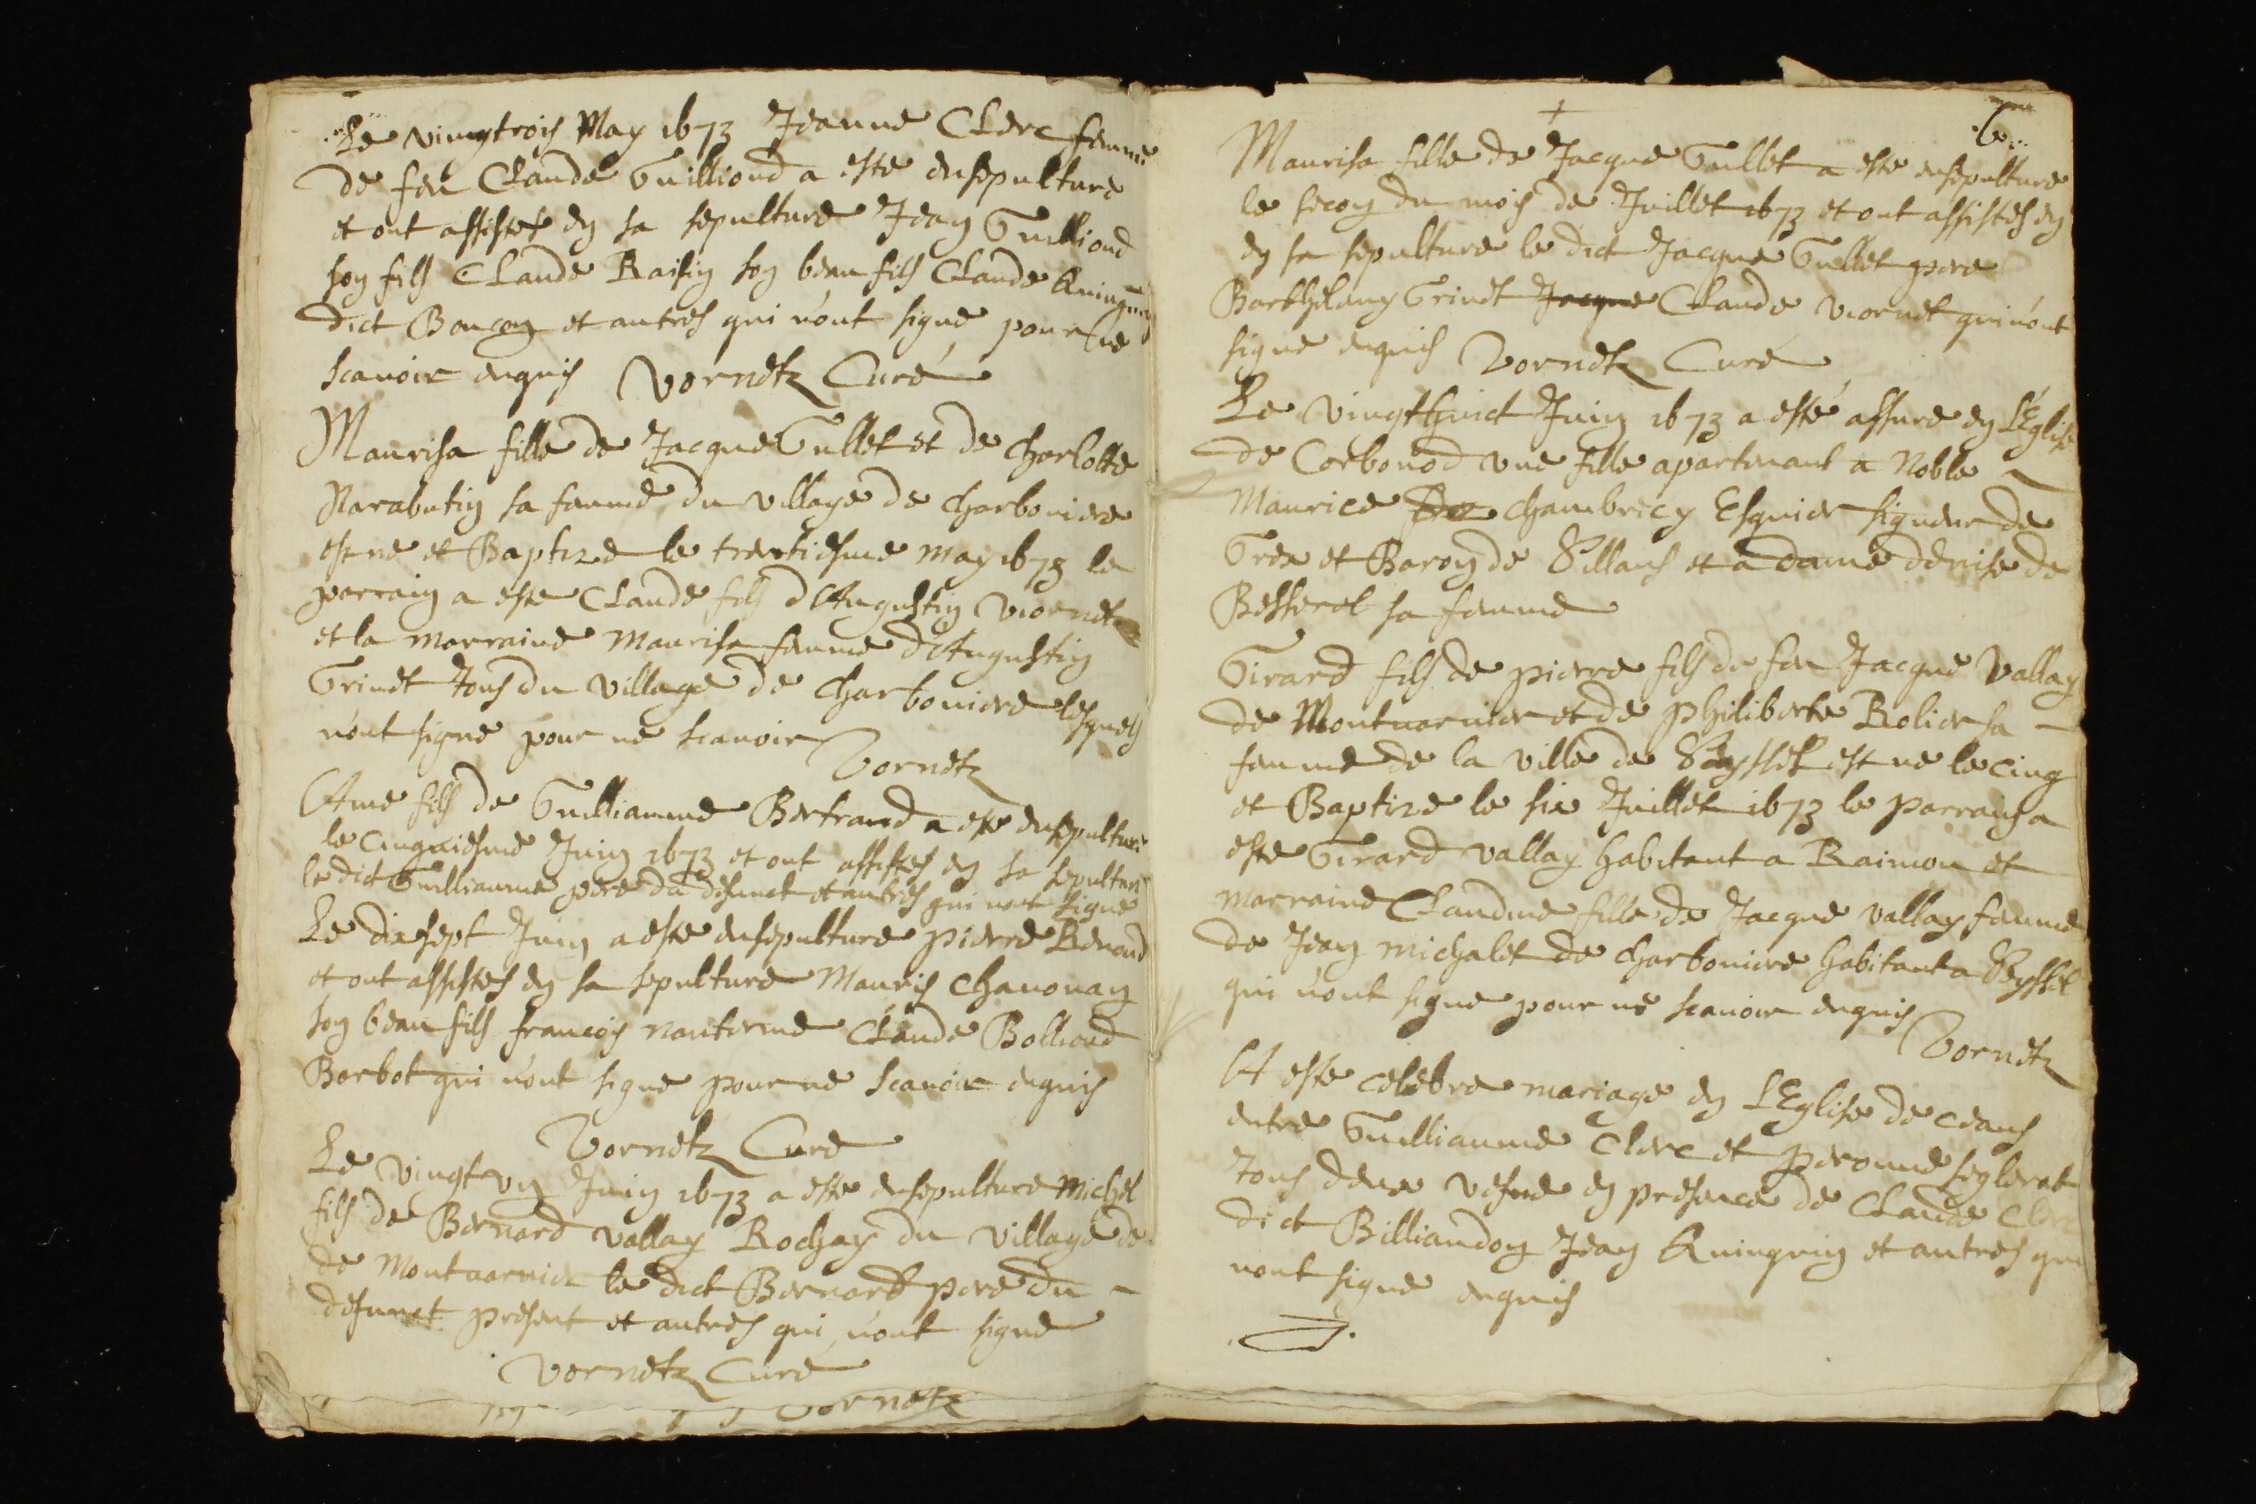 Le vingtrois May 1673 Jeanne Clerc femme
de feu Claude Guilliond a este ensepulture
et ont assistes en sa sepulture Jean Guilliond
son fils Claude Raisin son beau fils Claude
dict Boucon et autres qui n'ont signe pour ne
scavoir enquis Vornetz Curé
Maurisa fille de Jacque Gullet et de charlotte
Marabutin sa femme du village de charboniere
est ne et Baptize le trentiesme may 1673 le
parrain a este Claude fils d'Augustin Viornet
et la marraine Maurisa femme d'Augustin
Grinet tous du village de charboniere lesquels
n'ont signe pour ne scavoir
Vornetz
Ame fils de Guilliaume Bertrand a este ensepulture
le cinquiesme Juin 1673 et ont assistes en sa sepulture
le dict Guilliaume pere du defunct et autres qui nont signe
Le dixsept Juin a este ensepulture pierre Benoud
et ont assistes en sa sepulture Mauris chavonay
son beau fils francois nanterme Claude Bolliond
Borbot qui n'ont signe pour ne scavoir enquis
Vornetz Cure
Le vingt un Juin 1673 a este ensepulture Michel
fils de Bernard vallay Rochay du village de
de Montvarnier le dict Bernard pere du
defunct present et autres qui n'ont signe
Vornetz Curé
Vornetz
6
Maurisa fille de Jacque Gullet a este ensepulture
le secon du mois de Juillet 1673 et ont assistes en
en sa sepulture le dict Jacque Gullet pere
Barthelemy Grinet Jacque Claude viornet qui n'ont
signe enquis Vornetz Curé
Le vingthuict Juin 1673 a esté assure en l'Eglise
de Corbonod une fille apartenant a Noble
Maurice chambricy Esquier signeur de
Grex et Baron de Sillans et a dame denise de
Besserel sa femme
Girard fils de pierre fils du feu Jacque Vallay
de Montvarnier et de philiberte Rolier sa
femme de la ville de Seyssel est ne le cinq
et Baptize le six Juillet 1673 le parrain a
este Girard vallay habitant a Raimon et
marraine Claudine fille de Jacque vallay femme
de Jean michalet de charboniere habitant a Seyssel
qui n'ont signe pour ne scavoir enquis
Vornetz
A este celebre mariage en l'Eglise de ceans
entre Guilliaume Clerc et peronne seglerat
tous deux vesue en presence de Claude Clerc
dict Billiandon Jean Quinquin et autres qui
nont signe enquis